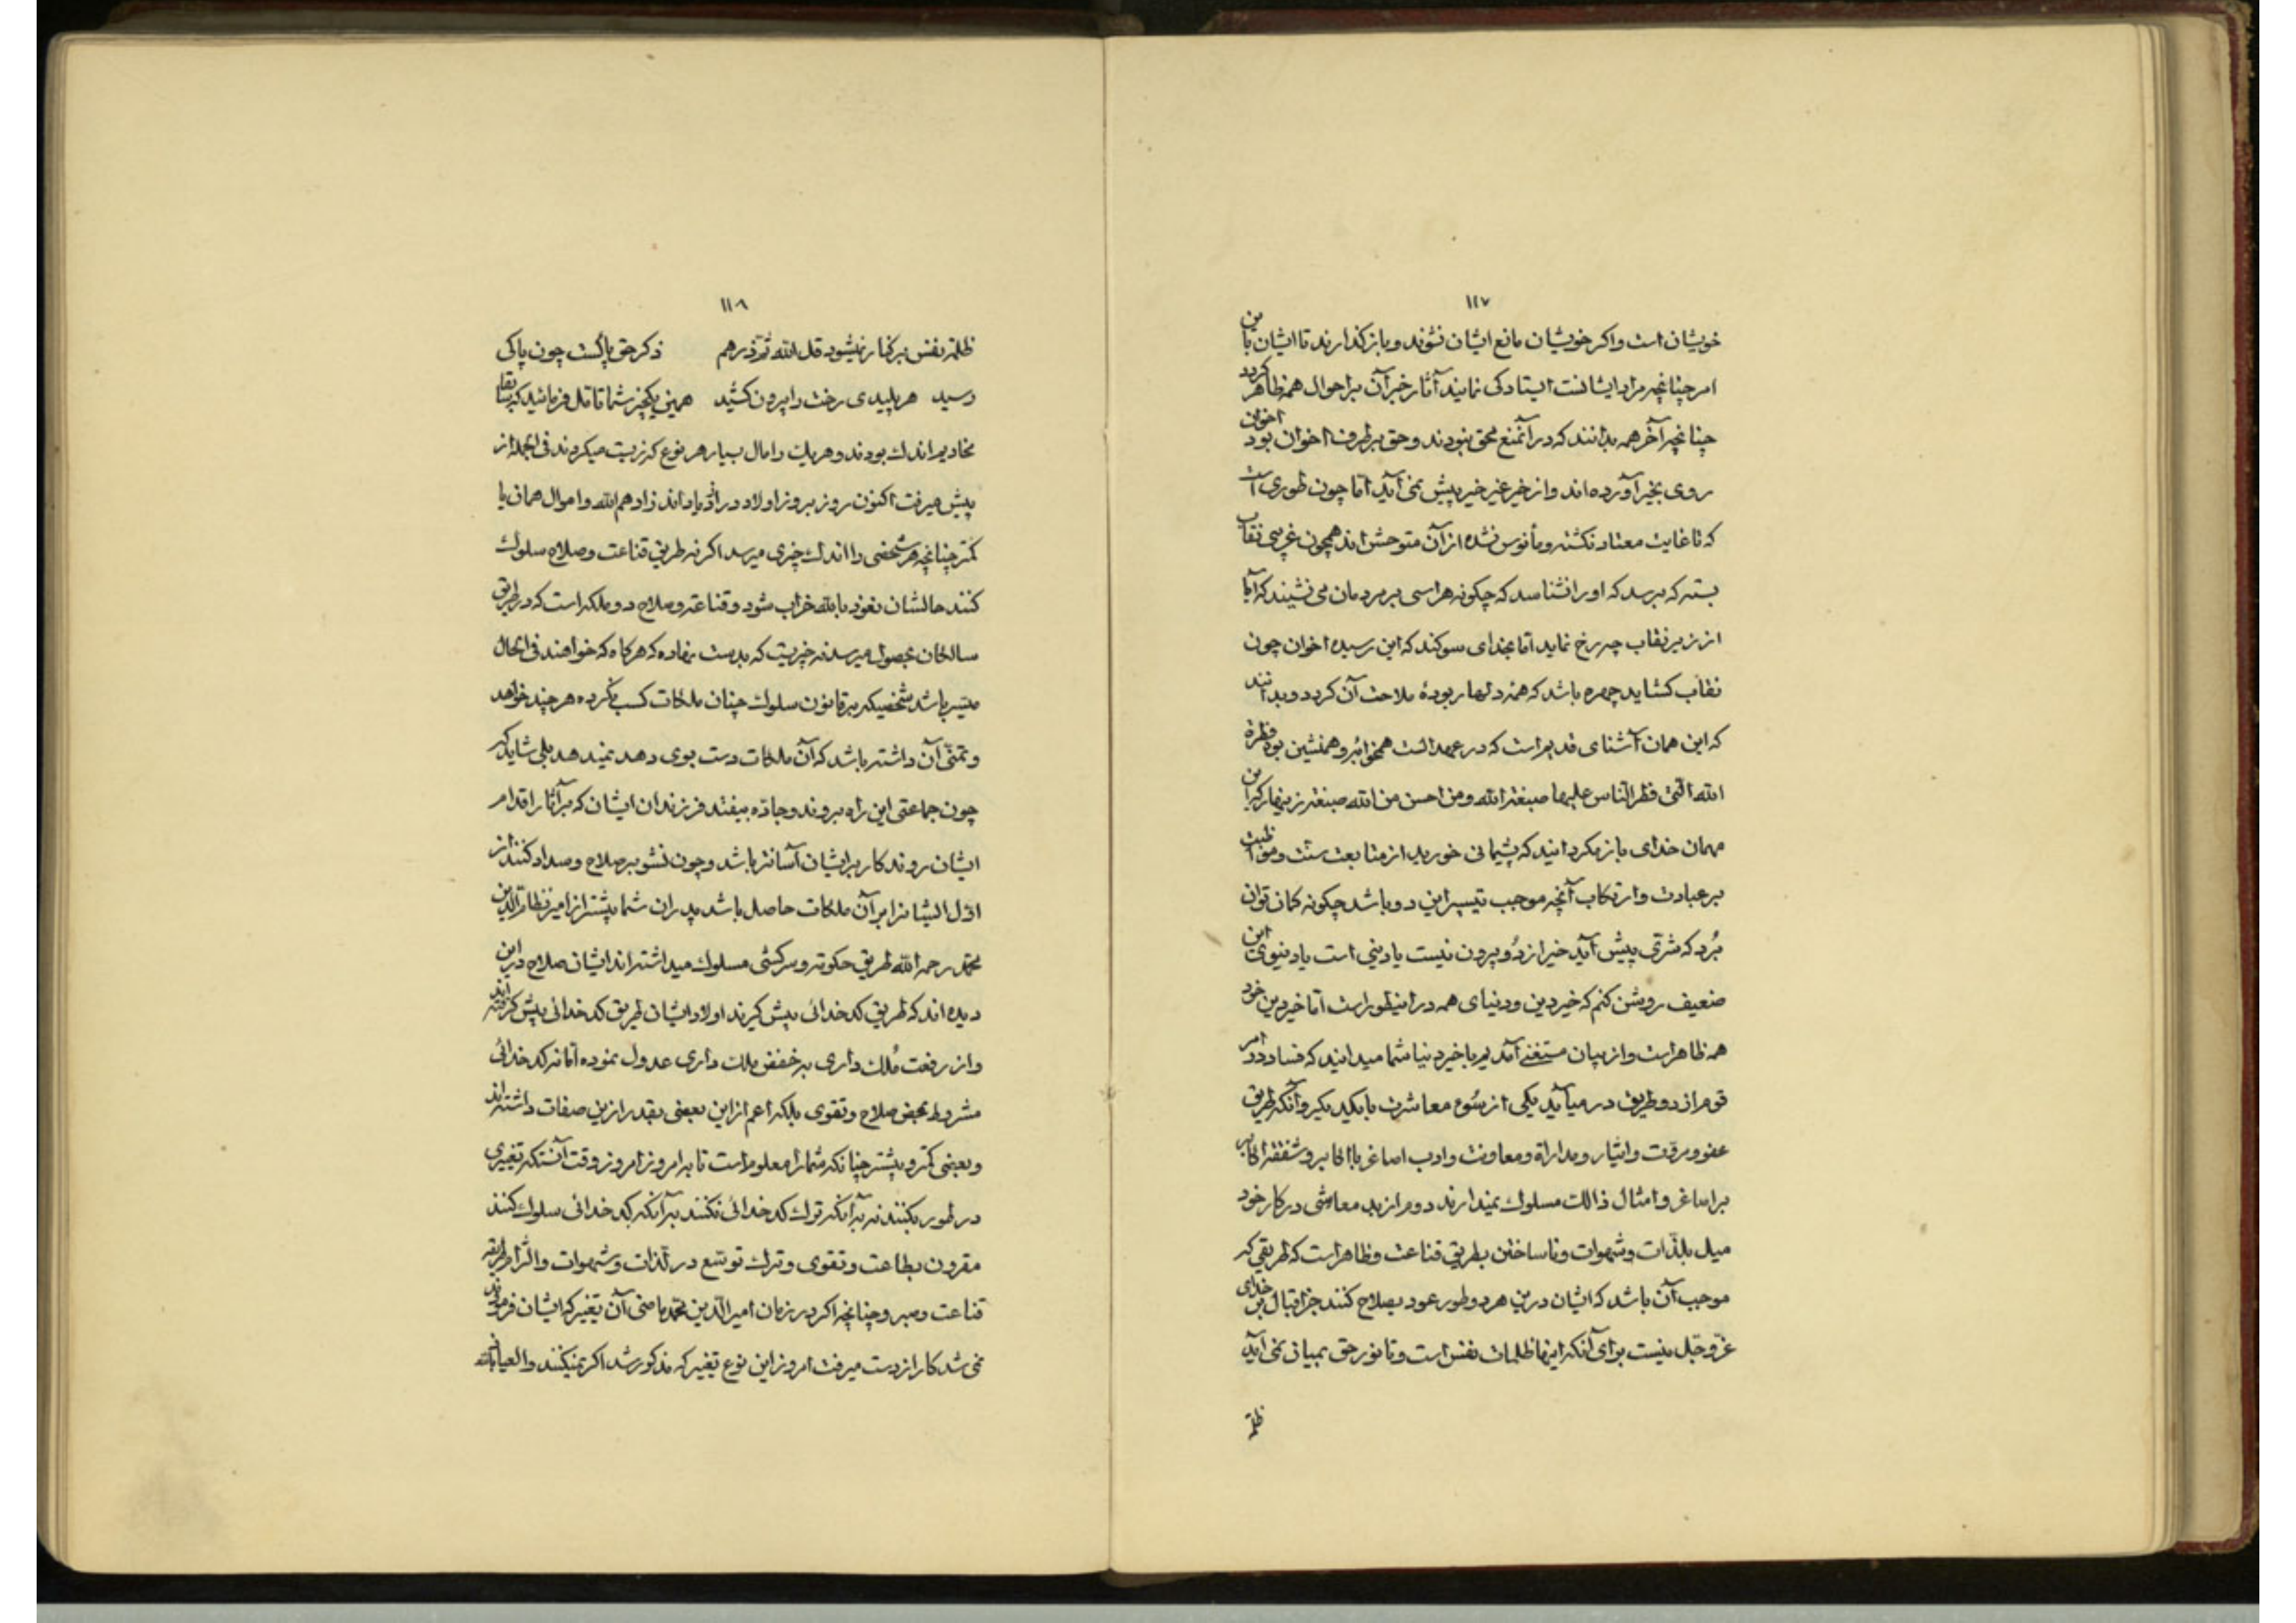 ١١٧
خویشان است واکر خویشان مانع ایشان نشوند وباز کذارند تا ایشان باین
امر چنانچه مراد ایشانست ایستادکی نمایند آثار خیر آن بر احوال همه ظاهر کردد
چنانچه آخر همه بدانند که در آنمنع محق نبودند وحق بر طرف اخوان بود اخوان
روی بخیر آورده اند واز خیر غیر خیر پیش نمی آید اما چون طوری است
که تا غایت معتاد نکشته ومأنوس نشده از آن متوحش اند همچون غریبی نقاب
بسته که برسد که اورا نشناسد که چکونه هراسی بر مردمان می نشیند که آیا
از زیر نقاب چه رخ نماید اما بخدای سوکند که این رسیده اخوان چون
نقاب کشاید چهره باشد که همه دلها ربودهٔ ملاحت آن کردد وبدانند
که این همان آشنای قدیم است که در عهد الست همخوابه وهمنشین بود فطرة
الله التی فطر الناس علیها صبغة الله ومن احسن من الله صبغة زینهار که این
مهمان خدای باز مکردانید که پشیمانی خورید از متابعت سنت ومواظبت
بر عبادت وارتکاب آنچه موجب تیسیر این دو باشد چکونه کمان توان
بُرد که شرّی پیش آید خیر از دُو بیرون نیست یا دینی است یا دنیوی این
ضعیف روشن کنم که خیر دین ودنیای همه در اینطور است اما خیر دین خود
همه ظاهر است واز بیان مستغنی آمدیم با خیر دنیا شما میدانید که فساد در امر
قوم از دو طریق در میآید یکی از سُوء معاشرت با یکدیکر وآنکه طریق
عفو ومروّت وایثار ومداراة ومعاونت وادب اصاغر با اکابر وشفقة اکابر
بر اصاغر وامثال ذالك مسلوك نمیدارند دوم از بد معاشی در کار خود
میل بلذّات وشهوات وناساختن بطریق قناعت وظاهر است که طریقی که
موجب آن باشد که ایشان درین هر دو طور عود بصلاح کنند جز اقبال بر خدای
عزّ وجلّ نیست برای آنکه اینها ظلمات نفس است وتا نور حق بمیان نمی آید
ظلمة
١١٨
ظلمة نفس بر کنار نمیشود قل الله ثمّ ذرهم ذکر حق پاکست چون پاکی
رسید هر پلیدی رخت را بیرون کشید همین یکچیز شما تأمّل فرمائید که بقا
مخادیم اندك بودند وهریك را مال بسیار هر نوع که زیست میکردند فی الجمله از
پیش میرفت اکنون روز بروز اولاد در ازدیاد اند زادهم الله واموال همان یا
کمتر چنانچه هر شخصی را اندك چیزی میرسد اکر نه طریق قناعت وصلاح سلوك
کنند حالشان نعوذ بالله خراب شود وقناعة وصلاح دو ملکه است که در طریق
سالکان بحصول میرسد نه چیزیست که بدست نهاده که هرکاه که خواهند فی الحال
میسّر باشد شخصیکه بر قانون سلوك چنان ملکات کسب نکرده هرچند خواهد
وتمنّی آن داشته باشد که آن ملکات دست بوی دهد نمیدهد بلی شاید که
چون جماعتی این راه بروند وجادّه بیفتد فرزندان ایشان که بر آثار اقدام
ایشان روند کار بر ایشان آسانتر باشد وچون نشو بر صلاح وسداد کنند از
اوّل ایشانرا بر آن ملکات حاصل باشد پدران شما پیشتر از امیر نظام الدین
محمّد رحمه الله طریق حکومة وسرکشی مسلوك میداشته اند ایشان صلاح در این
دیده اند که طریق کدخدائی پیش کیرند اولاد ایشان طریق کدخدائی پیش کرفته اند
واز رفعت مُلك داری بر خفض ملك داری عدول نموده اما نه کدخدائی
مشروط بمحض صلاح وتقوی بلکه اعم از این بعضی بقدر ازین صفات داشته اند
وبعضی کمتر وبیشتر چنانکه شمارا معلوم است تا به امروز امروز وقت آنستکه تغییری
در طور بکنند نه بر آنکه ترك کدخدائی نکنند بر آنکه کدخدائی سلوك کنند
مقرون بطاعت وتقوی وترك توسّع در لذّات وشهوات والتزام طریقه
قناعت وصبر وچنانچه اکر در زمان امیر الدین محمّد ماضی آن تغییر که ایشان فرمودند
نمی شد کار از دست میرفت امروز این نوع تغییر که مذکور شد اکر نمیکنند والعیاذ بالله